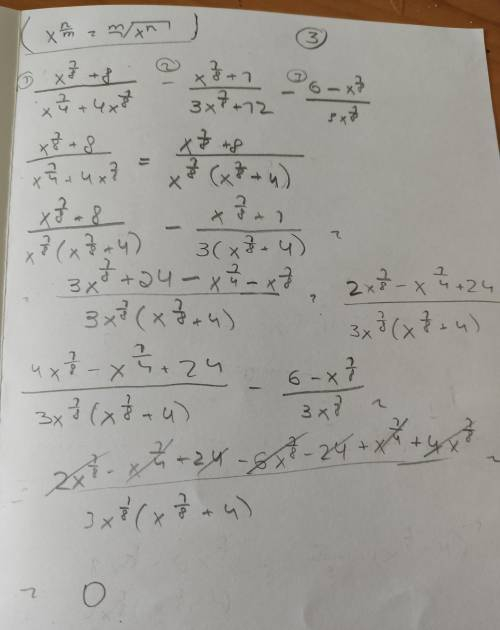 ( x^{n/m} = ^m√(x^n) )
③
① (x^{7/8} + 8)/(x^{7/4} + 4x^{7/8}) ② − (x^{7/8} + 1)/(3x^{7/8} + 12) ③ − (6 − x^{7/8})/(3x^{7/8})
(x^{7/8} + 8)/(x^{7/4} + 4x^{7/8}) = (x^{7/8} + 8)/(x^{7/8}(x^{7/8} + 4))
(x^{7/8} + 8)/(x^{7/8}(x^{7/8} + 4)) − (x^{7/8} + 1)/(3(x^{7/8} + 4)) =
= (3x^{7/8} + 24 − x^{7/4} − x^{7/8})/(3x^{7/8}(x^{7/8} + 4)) = (2x^{7/8} − x^{7/4} + 24)/(3x^{7/8}(x^{7/8} + 4))
(4x^{7/8} − x^{7/4} + 24)/(3x^{7/8}(x^{7/8} + 4)) − (6 − x^{7/8})/(3x^{7/8}) =
= (2x^{7/8} − x^{7/4} + 24 − 6x^{7/8} − 24 + x^{7/4} + 4x^{7/8})/(3x^{7/8}(x^{7/8} + 4)) =
= 0